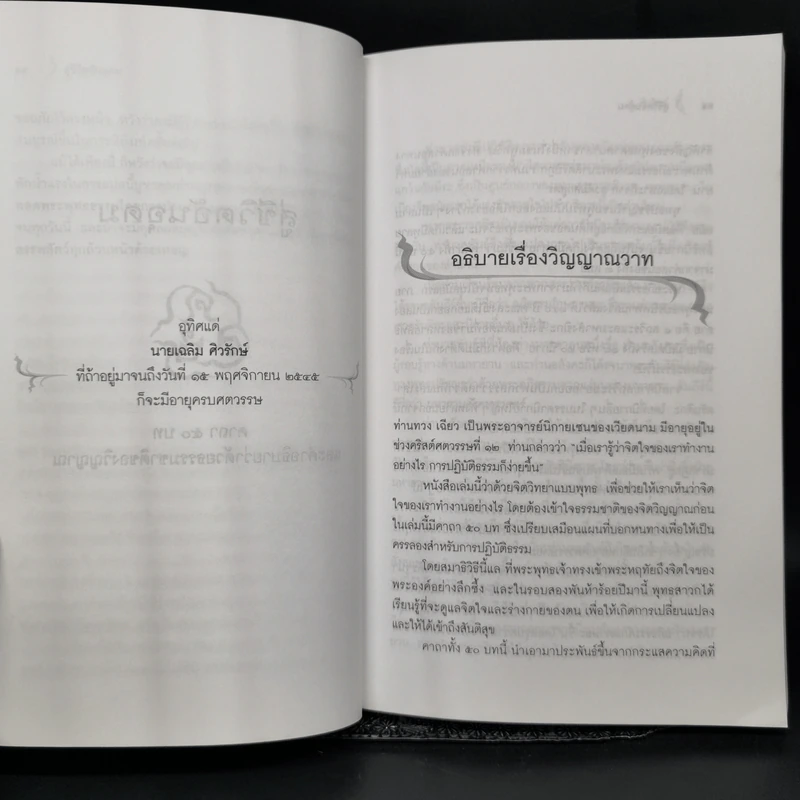 อุทิศแด่
นายเฉลิม ศิวรักษ์
ที่ถ้าอยู่มาจนถึงวันที่ ๑๕ พฤศจิกายน ๒๕๔๕
ก็จะมีอายุครบศตวรรษ
อธิบายเรื่องวิญญาณวาท
ท่านทวง เฉียว เป็นพระอาจารย์นิกายเซนของเวียดนาม มีอายุอยู่ใน
ช่วงคริสต์ศตวรรษที่ ๑๒ ท่านกล่าวว่า "เมื่อเรารู้ว่าจิตใจของเราทำงาน
อย่างไร การปฏิบัติธรรมก็ง่ายขึ้น"
หนังสือเล่มนี้ว่าด้วยจิตวิทยาแบบพุทธ เพื่อช่วยให้เราเห็นว่าจิต
ใจของเราทำงานอย่างไร โดยต้องเข้าใจธรรมชาติของจิตวิญญาณก่อน
ในเล่มนี้มีคาถา ๕๐ บท ซึ่งเปรียบเสมือนแผนที่บอกหนทางเพื่อให้เป็น
ครรลองสำหรับการปฏิบัติธรรม
โดยสมาธิวิธีนี้แล ที่พระพุทธเจ้าทรงเข้าพระหฤทัยถึงจิตใจของ
พระองค์อย่างลึกซึ้ง และในรอบสองพันห้าร้อยปีมานี้ พุทธสาวกได้
เรียนรู้ที่จะดูแลจิตใจและร่างกายของตน เพื่อให้เกิดการเปลี่ยนแปลง
และให้ได้เข้าถึงสันติสุข
คาถาทั้ง ๕๐ บทนี้ นำเอามาประพันธ์ขึ้นจากกระแสความคิดที่